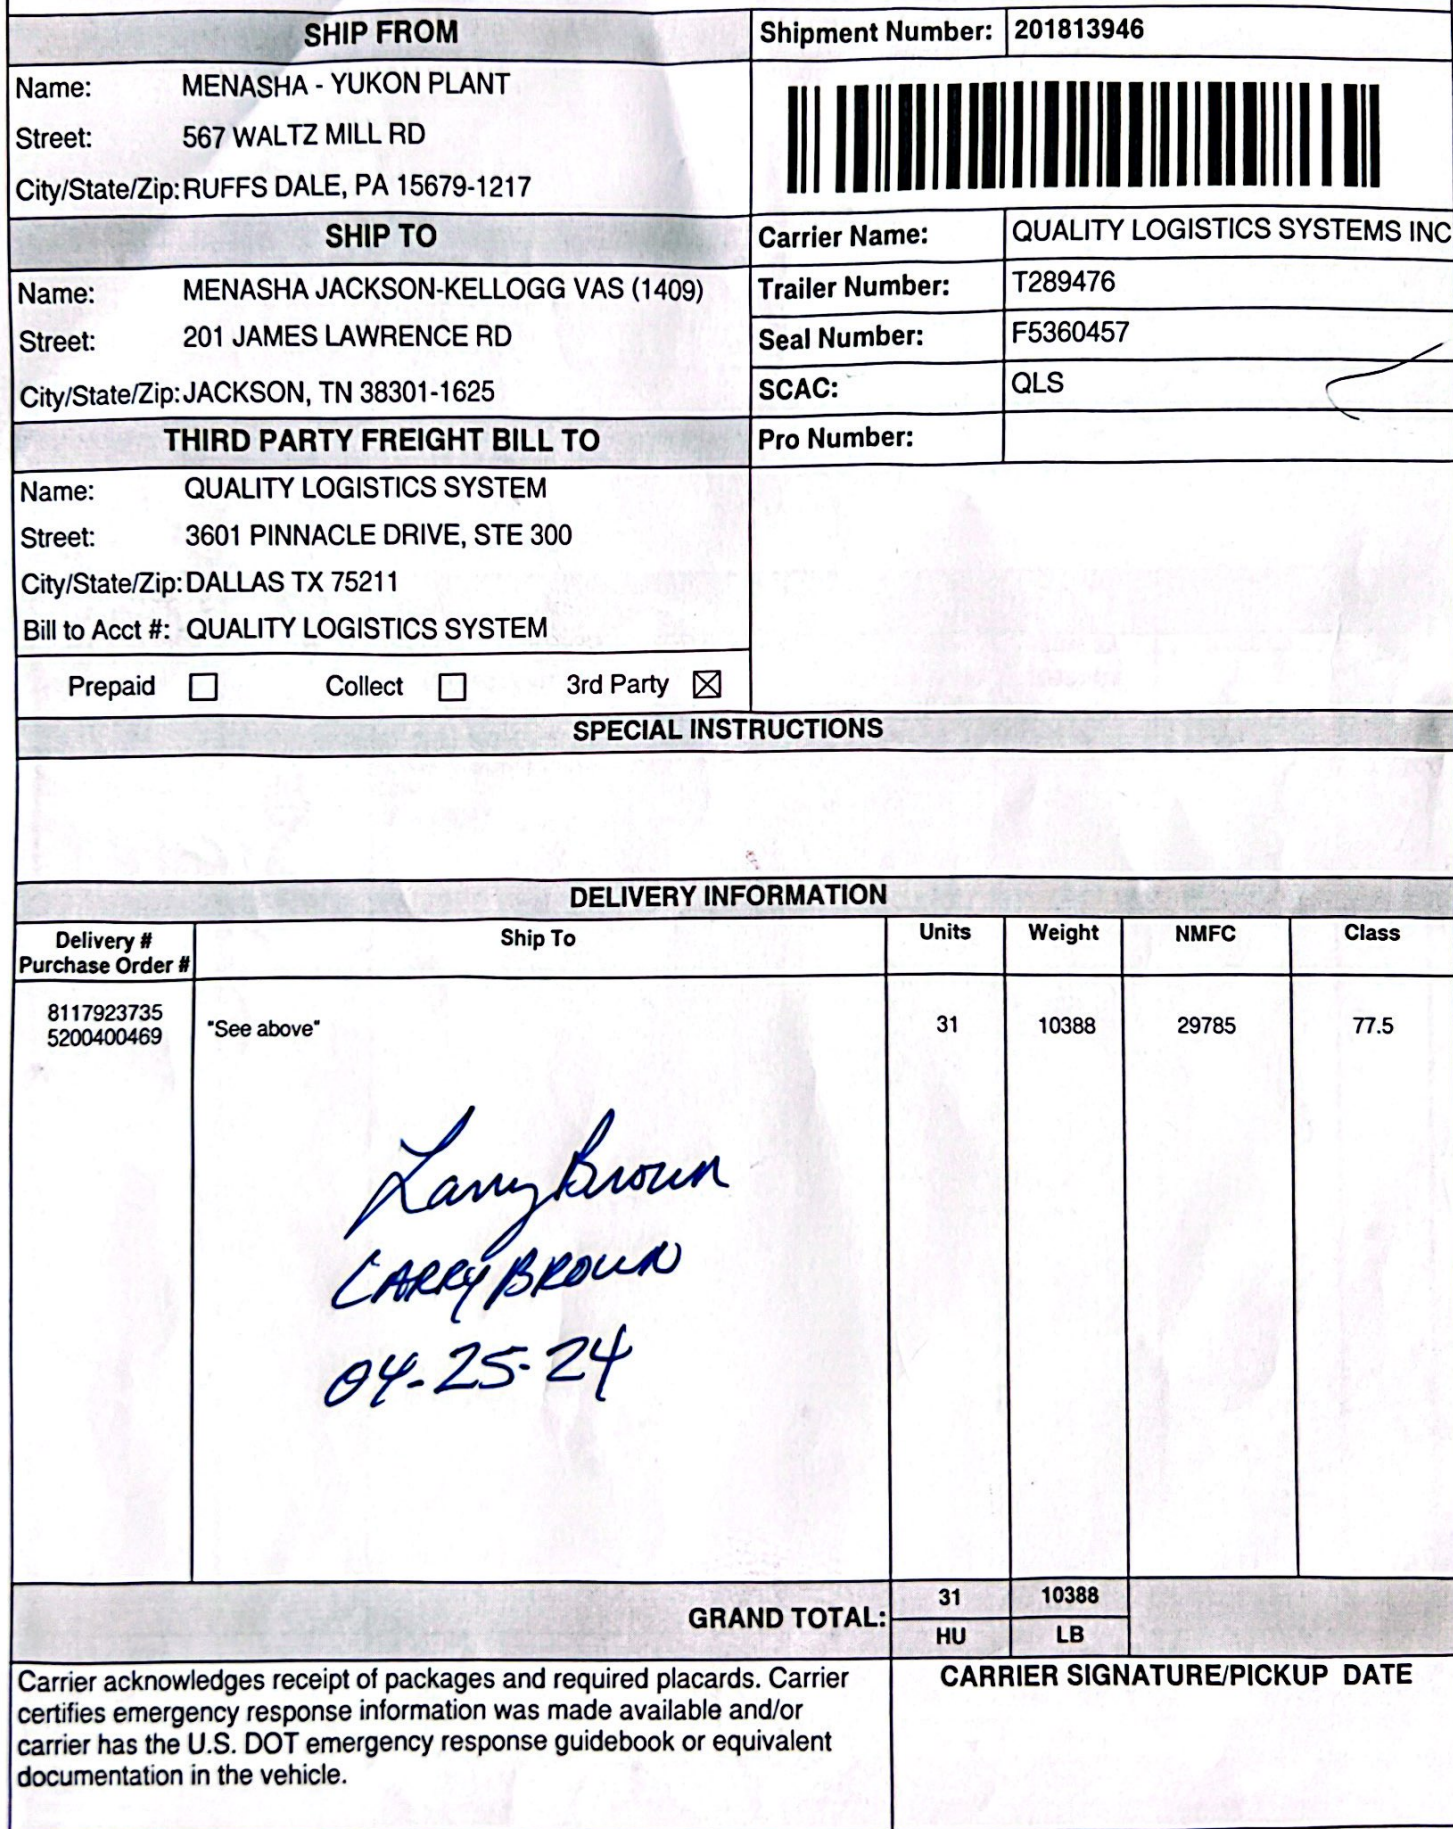 SHIP FROM
Name: MENASHA - YUKON PLANT
Street: 567 WALTZ MILL RD
City/State/Zip: RUFFS DALE, PA 15679-1217
SHIP TO
Name: MENASHA JACKSON-KELLOGG VAS (1409)
Street: 201 JAMES LAWRENCE RD
City/State/Zip: JACKSON, TN 38301-1625
THIRD PARTY FREIGHT BILL TO
Name: QUALITY LOGISTICS SYSTEM
Street: 3601 PINNACLE DRIVE, STE 300
City/State/Zip: DALLAS TX 75211
Bill to Acct #: QUALITY LOGISTICS SYSTEM
Prepaid ☐ Collect ☐ 3rd Party ☒
Shipment Number: 201813946
Carrier Name: QUALITY LOGISTICS SYSTEMS INC
Trailer Number: T289476
Seal Number: F5360457
SCAC: QLS
Pro Number:
SPECIAL INSTRUCTIONS
DELIVERY INFORMATION
Delivery # Ship To Units Weight NMFC Class
Purchase Order #
8117923735 "See above" 31 10388 29785 77.5
5200400469
Larry Brown
LARRY BROWN
04-25-24
GRAND TOTAL: 31 10388
HU LB
Carrier acknowledges receipt of packages and required placards. Carrier
certifies emergency response information was made available and/or
carrier has the U.S. DOT emergency response guidebook or equivalent
documentation in the vehicle.
CARRIER SIGNATURE/PICKUP DATE